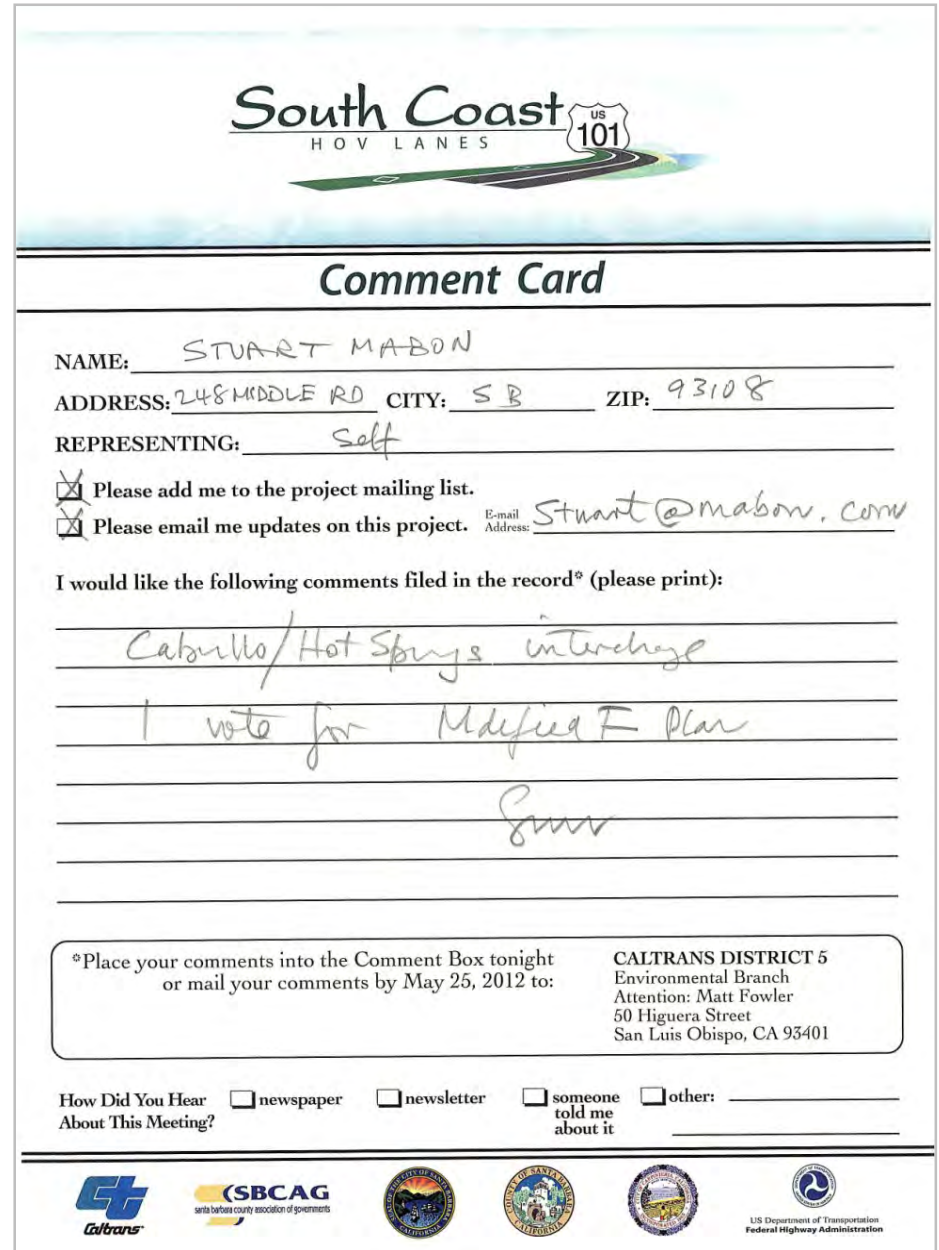 South Coast
HOV LANES
US
101
Comment Card
NAME: STUART MABON
ADDRESS: 248 MIDDLE RD CITY: S B ZIP: 93108
REPRESENTING: Self
Please add me to the project mailing list.
Please email me updates on this project. E-mail Address: Stuart@mabon.com
I would like the following comments filed in the record* (please print):
Cabrillo/Hot Springs interchange
I vote for Modified F Plan
*Place your comments into the Comment Box tonight
or mail your comments by May 25, 2012 to:
CALTRANS DISTRICT 5
Environmental Branch
Attention: Matt Fowler
50 Higuera Street
San Luis Obispo, CA 93401
How Did You Hear
About This Meeting?
newspaper
newsletter
someone
told me
about it
other:
Caltrans
SBCAG
santa barbara county association of governments
COUNTY OF SANTA BARBARA
CALIFORNIA
US Department of Transportation
Federal Highway Administration